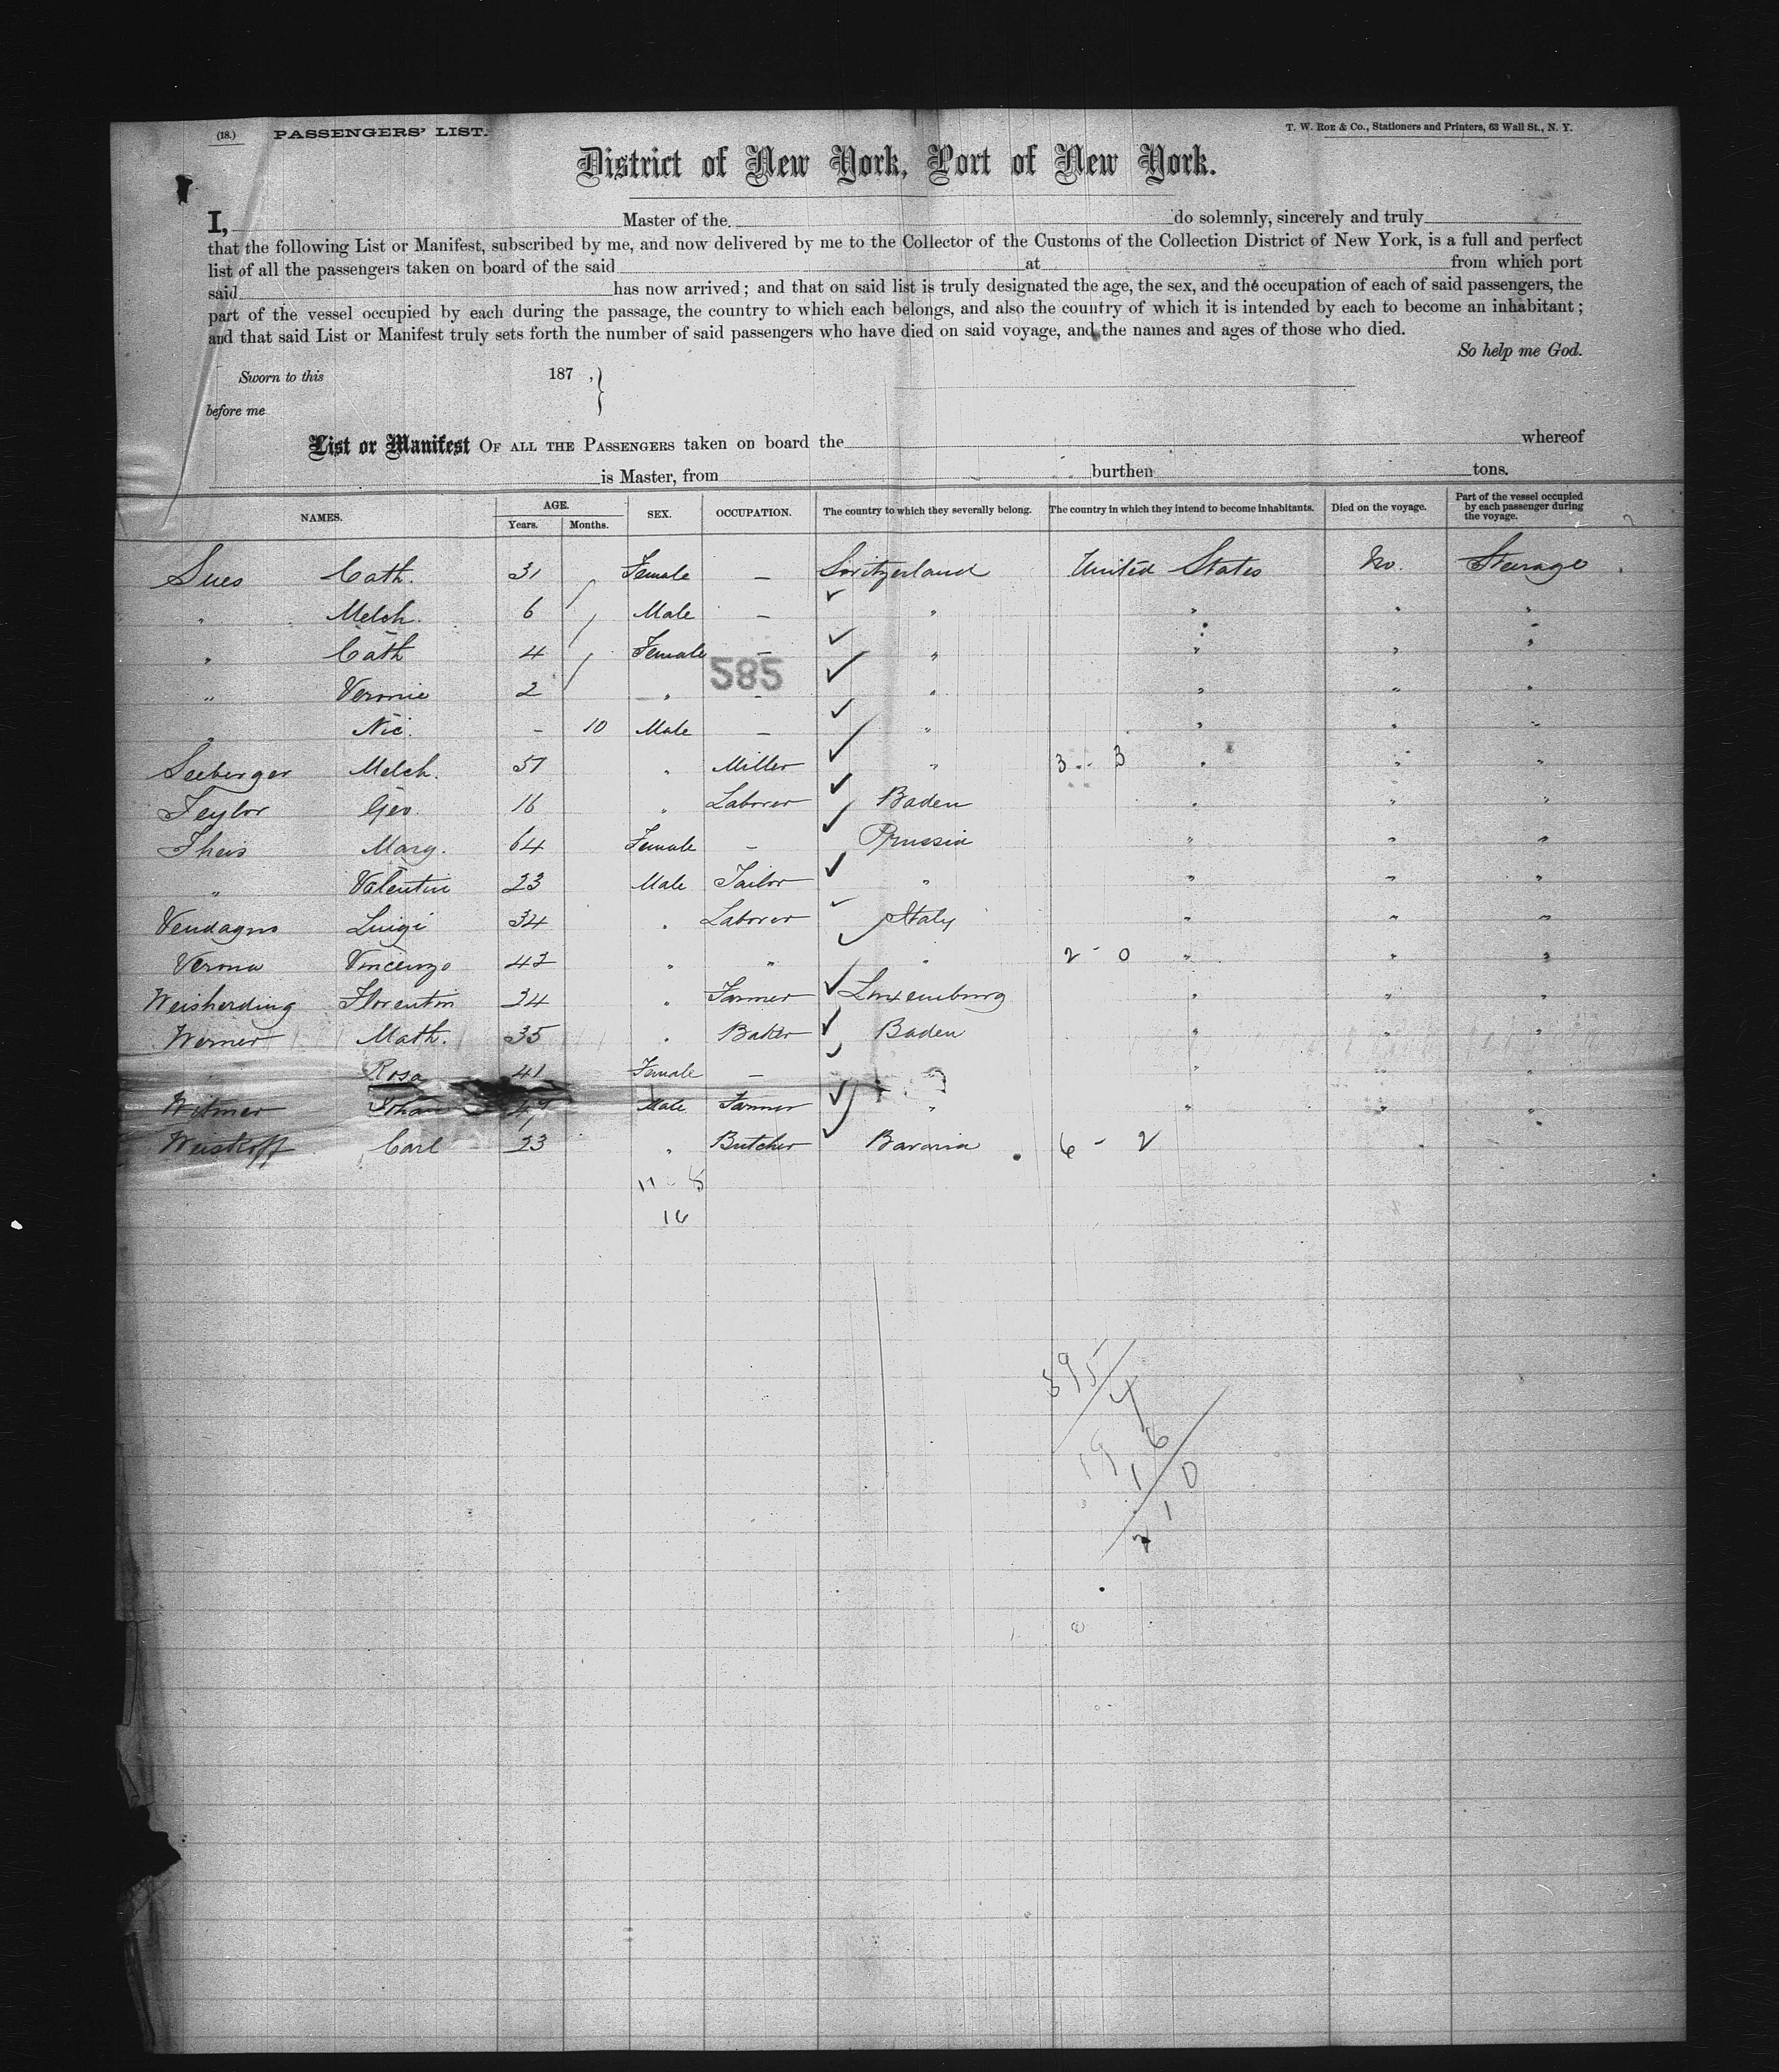 (18.) PASSENGERS' LIST. T. W. ROE & CO., Stationers and Printers, 63 Wall St., N. Y.
District of New York, Port of New York.
I, Master of the do solemnly, sincerely and truly
that the following List or Manifest, subscribed by me, and now delivered by me to the Collector of the Customs of the Collection District of New York, is a full and perfect
list of all the passengers taken on board of the said at from which port
said has now arrived; and that on said list is truly designated the age, the sex, and the occupation of each of said passengers, the
part of the vessel occupied by each during the passage, the country to which each belongs, and also the country of which it is intended by each to become an inhabitant;
and that said List or Manifest truly sets forth the number of said passengers who have died on said voyage, and the names and ages of those who died.
So help me God.
Sworn to this 187 ,}
before me
List or Manifest OF ALL THE PASSENGERS taken on board the whereof
is Master, from burthen tons.
NAMES. AGE. Years. Months. SEX. OCCUPATION. The country to which they severally belong. The country in which they intend to become inhabitants. Died on the voyage. Part of the vessel occupied by each passenger during the voyage.
Sues Cath. 31 Female — Switzerland United States No. Steerage
" Melch. 6 Male — " " " "
" Cath 4 Female — " " " "
585
" Veronie 2 " - " " " "
" Nic. - 10 Male — " " " "
Seeberger Melch. 57 " Miller " 3 - 3 " " "
Teylor Geo. 16 " Laborer Baden " " "
Theis Marg. 64 Female — Prussia " " "
" Valentin 23 Male Tailor " " " "
Vendagno Luigi 34 " Laborer Italy " " "
Verona Vincenzo 42 " " " 2 - 0 " " "
Weisherding Florentin 34 " Farmer Luxemburg " " "
Werner Math. 35 " Baker Baden " " "
Rosa 41 Female — " " " "
Witmer Johan 47 Male Farmer " " " "
Weiskopf Carl 23 " Butcher Bavaria 6 - 2
11 - 5
16